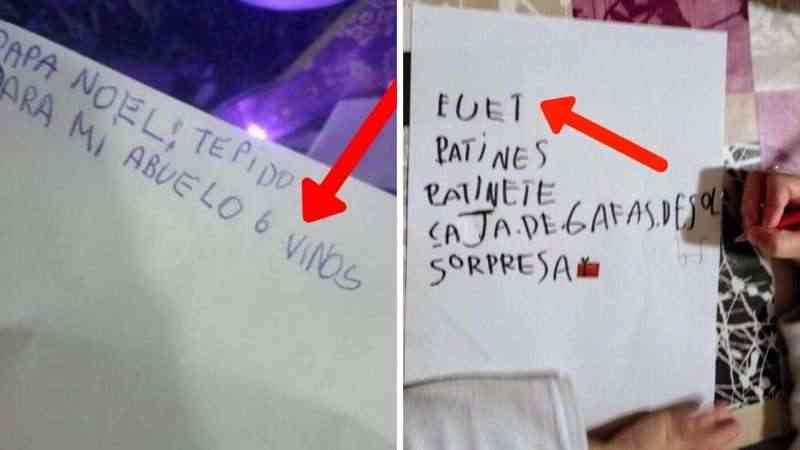 PAPA NOEL; TEPIDO
PARA MI ABUELO 6 VINOS
EUET
PATINES
PATINETE
CAJA.DE.GAFAS.DESOL
SORPRESA